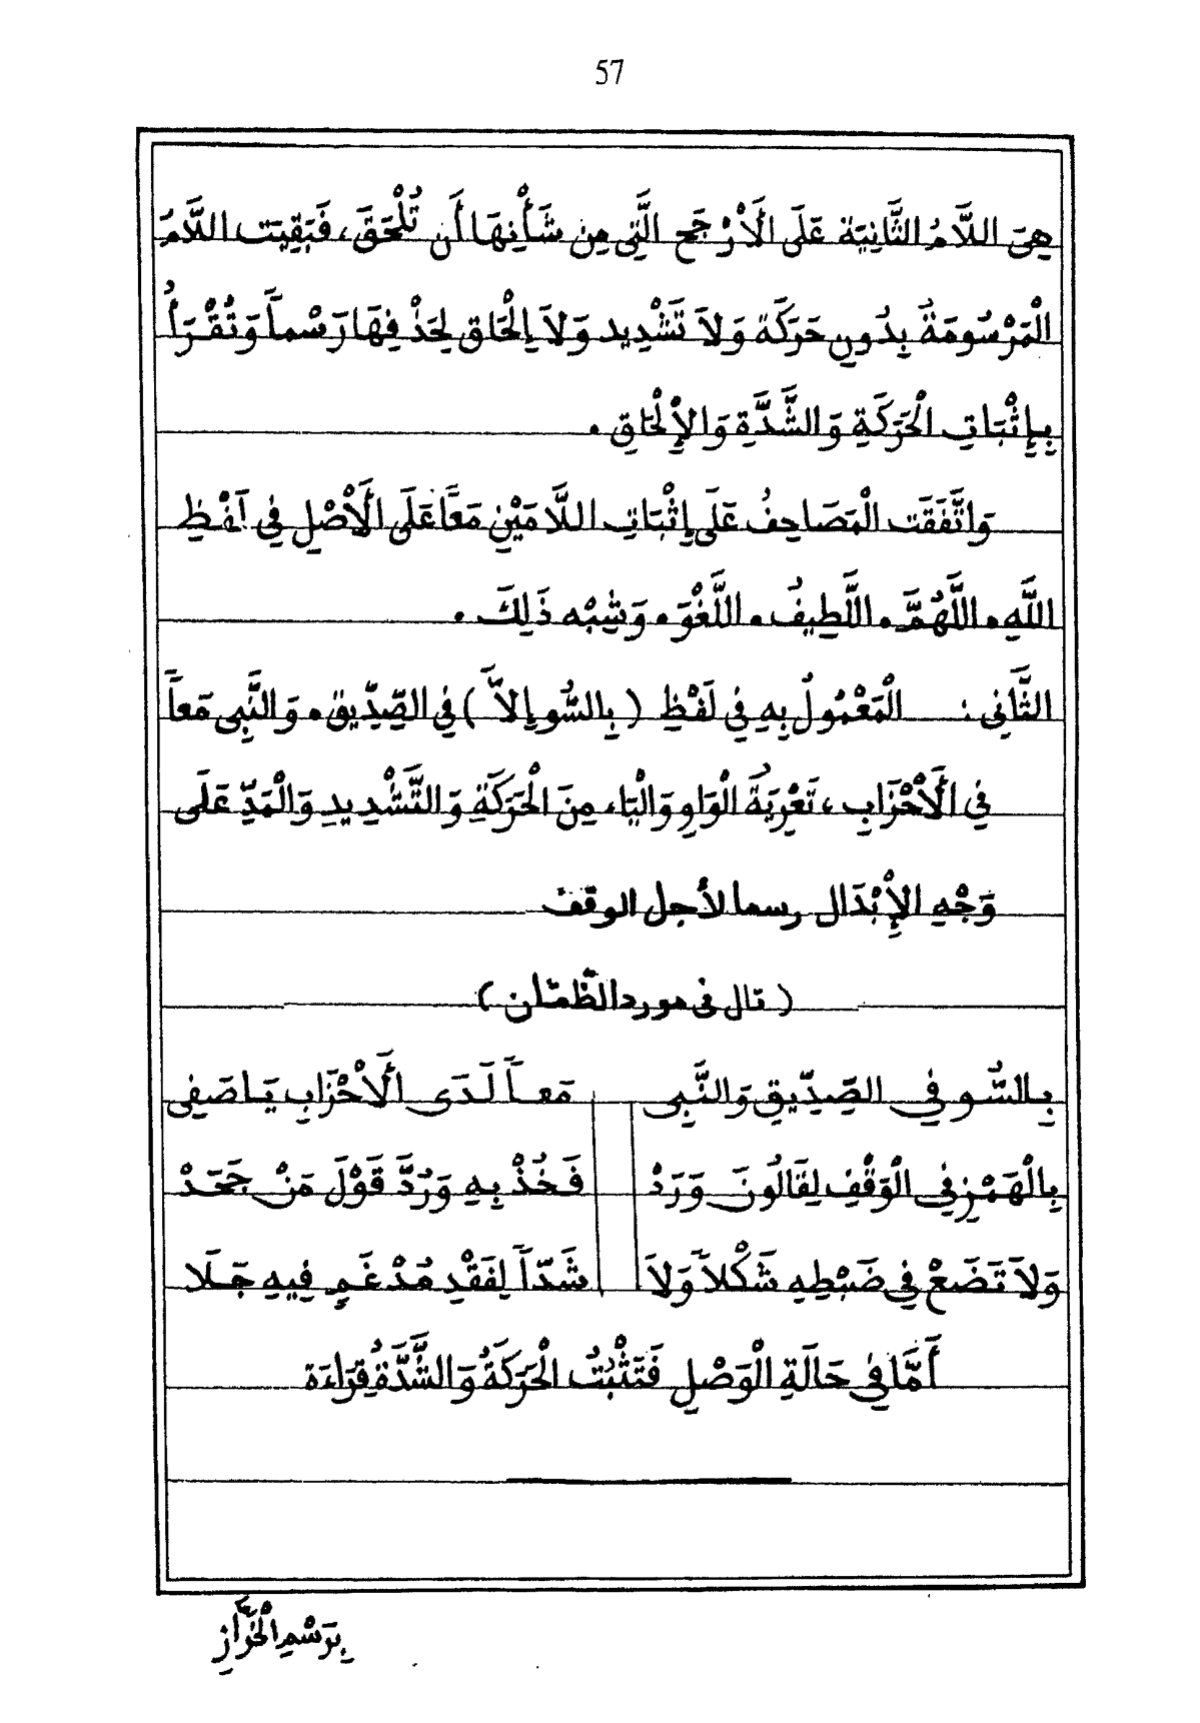 57
هِيَ اللَّامُ الثَّانِيَة عَلَى الَأرْجَحِ الَّتِى مِن شَأْنِهَا أَن تُلْحَقَ، فَبَقِيَت اللَّامُ
الْمَرْسُومَةُ بِدُونِ حَرَكَة وَلاَ تَشْدِيد وَلاَ إلْحَاق لِحَذْفِهَا رَسْماً وَتُقْرَأُ
بِإِثْبَاتِ الْحَرَكَةِ وَالشَّدَّةِ وَالإِلْحَاقِ .
وَاتَّفَقَت الْمَصَاحِفُ عَلَى إثْبَاتِ اللاَّمَيْنِ مَعًا عَلَى الَأصْلِ فِي لَفْظِ
اللَّهِ . اللَّهُمَّ . اللَّطِيفُ . اللَّغْوَ . وَشِبْه ذَلِكَ .
الثَّانِى : الْمَعْمُولُ بِهِ فِي لَفْظِ ( بِالسُّو إلاَّ ) فِي الصِّدِّيقِ . وَالنَّبِى مَعاً
فِي الَأحْزَابِ ، تَعْرِيَةُ الْوَاوِ وَالْيَاء مِنَ الْحَرَكَةِ وَالتَّشْدِيدِ وَالْمَدِّ عَلَى
وَجْهِ الإِبْدَال رسما لأجل الوقف
( قال فى مورد الظّمئان )
بِالسُّو فِي الصِّدِّيقِ وَالنَّبِى مَعاً لَدَى الَأحْزَابِ يَا صَفِى
بِالْهَمْزِ فِي الْوَقْفِ لِقَالُونَ وَرَدْ فَخُذْ بِهِ وَرُدَّ قَوْلَ مَنْ جَحَدْ
وَلاَ تَضَعْ فِي ضَبْطِهِ شَكْلاً وَلاَ شَدّاً لِفَقْدِ مُدْغَمٍ فِيهِ جَلَا
أَمَّا فِي حَالَةِ الْوَصْلِ فَتَثْبُتُ الْحَرَكَةُ وَالشَّدَّةُ قِرَاءَة
بِرَسْمِ الْخَرَّازِ